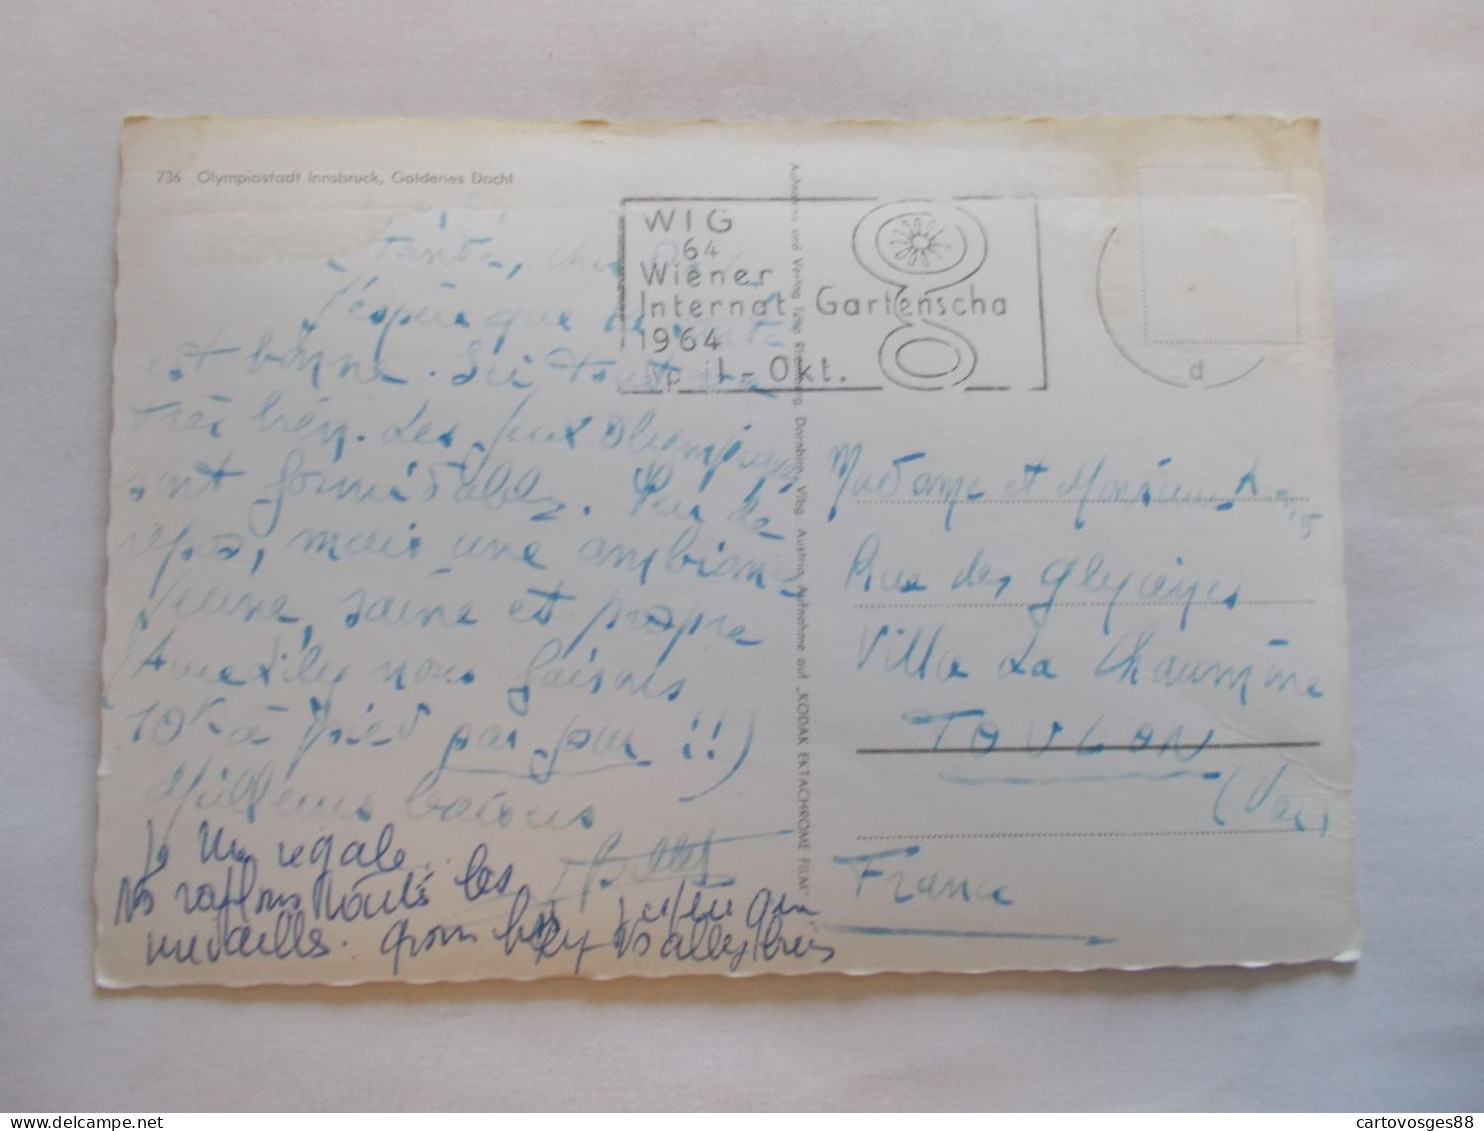 736 Olympiastadt Innsbruck, Goldenes Dachl
WIG
64
Wiener
Internat. Gartenscha
1964
April - Okt.
d
Aufnahme und Verlag Foto Rhomberg, Dornbirn, Vlbg. Austria, Aufnahme auf „KODAK EKTACHROME FILM"
Tante, cher
J'espère que
est bonne. Ici tout va
très bien. Les Jeux Olympiques
sont formidables. Peu de
repos, mais une ambiance
jeune, saine et propre
Avec Lily nous faisons
10 K à pied par jour !!)
Milliers baisers
Je me régale.
Ns raflons toutes les
medailles. gros J'espère que
Vs allez très
Madame et Monsieur
Rue des Glycines
Villa La Chaumine
TOULON
(Var)
France
cartovosges88